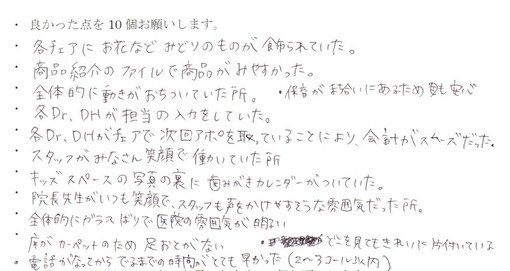 ・ 良かった点を 10 個お願いします。
・ 各チェアに お花など みどりのものが 飾られていた。
・ 商品紹介の ファイルで商品がみやすかった。
・ 全体的に動きがおちついていた所。 ・保育が となりにあるため 親も安心
・ 各Dr、DHが担当の入力をしていた。
・ 各Dr、DHがチェアで次回アポを取っていることにより、会計がスムーズだった。
・ スタッフがみなさん笑顔で働いていた所
・ キッズスペースの写真の裏に 歯みがきカレンダーがついていた。
・ 院長先生がいつも笑顔で、スタッフも声をかけやすそうな雰囲気だった所。
・ 全体的にガラスばりで医院の雰囲気が明るい
・ 床が カーペットのため 足おとがない ・ どこを見てもきれいに片付いている
・ 電話がなってからでるまでの時間がとても早かった(2〜3コール以内)